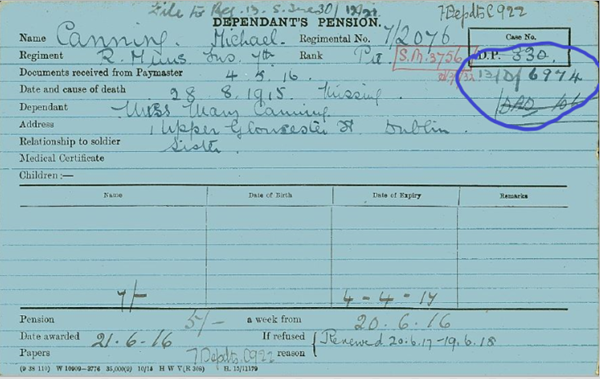 File to Reg. 13.
7 Depdts C922
DEPENDANT'S PENSION.
Name Canning. Michael. Regimental No. 7/2076
Case No.
D.P. 330.
Regiment R. Muns Fus 7th. Rank Pte S.M. 3756
13/D/6974
Documents received from Paymaster 4. 5. 16.
Date and cause of death 28 8. 1915. Missing
Dependant Miss Mary Canning.
Address 1 Upper Gloucester St. Dublin.
Relationship to soldier Sister.
Medical Certificate
Children :—
Name Date of Birth Date of Expiry Remarks
7/- 4 - 4 - 17
Pension 5/- a week from 20. 6. 16
Date awarded 21. 6. 16 If refused { Renewed 20.6.17 - 19.6.18
Papers 7 Depdts C922 reason
(9 38 110) W 10909—3776 35,000(2) 10/18 H W V(R 306) H. 15/11179